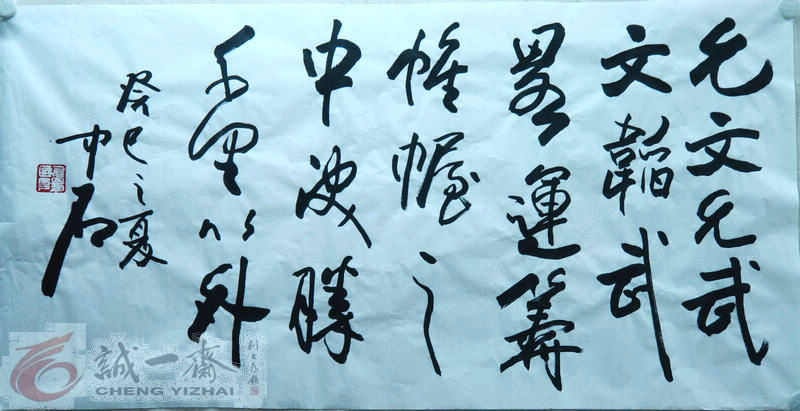 允文允武
文韜武
畧運籌
帷幄之
中決勝
千里以外
癸巳之夏
中石
誠一齋
CHENG YIZHAI